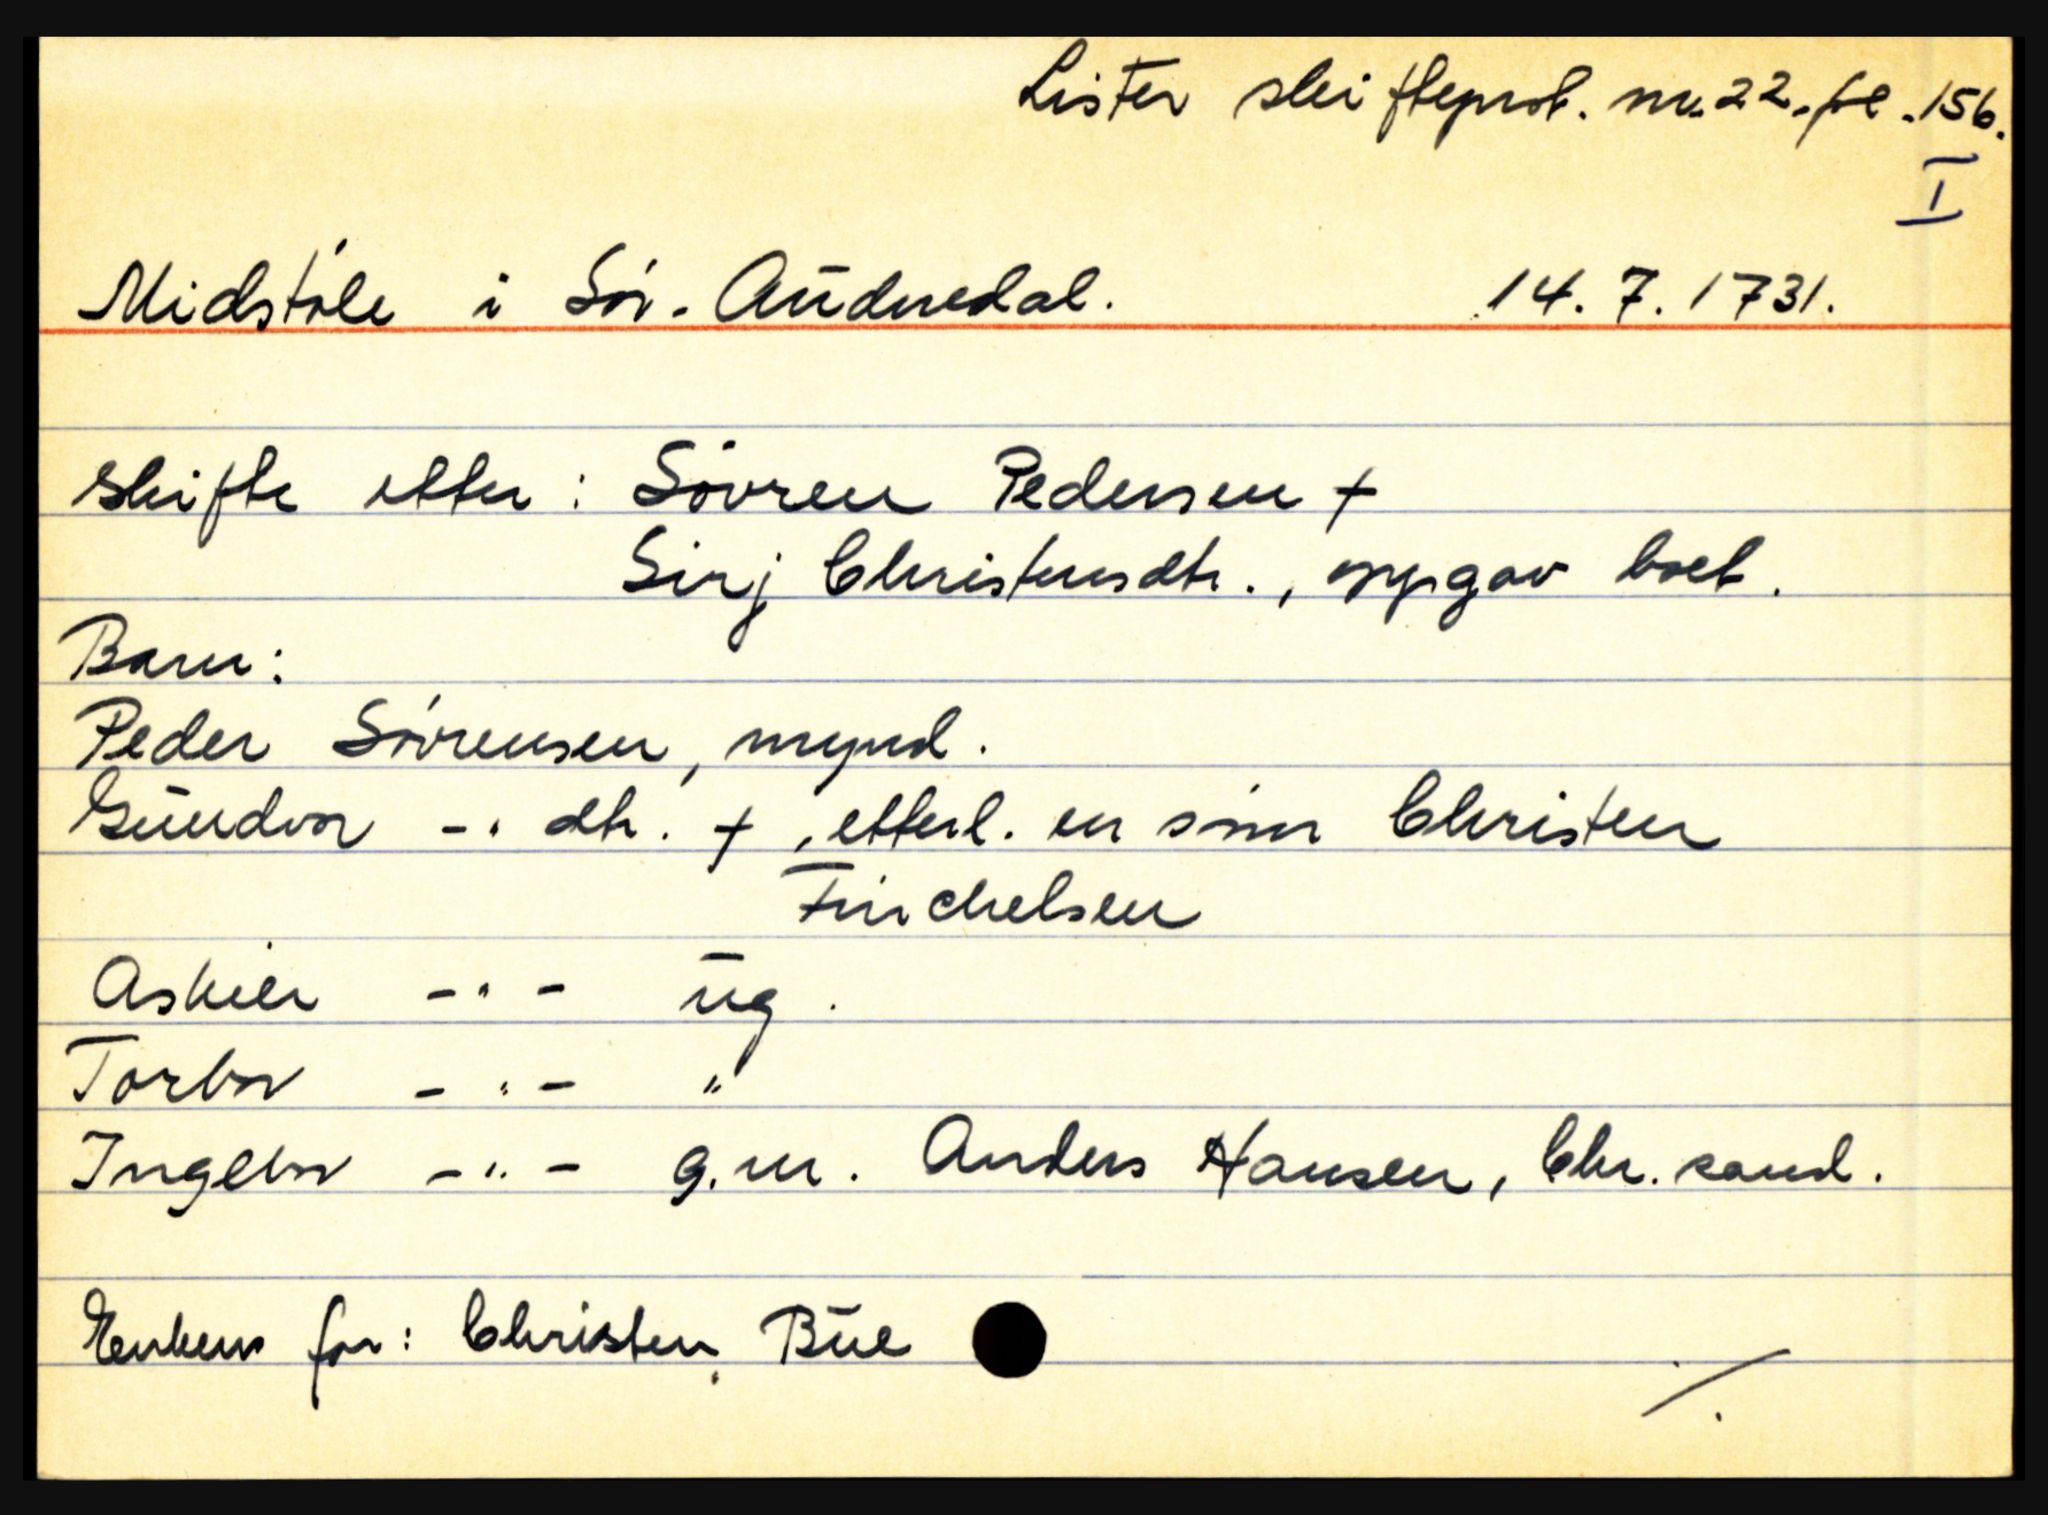 Lister skifteprot. nr. 22. fol. 156.
I
Midstøle i Sør-Audnedal. 14.7.1731.
skifte etter: Søvren Pedersen +
Sirj Christensdtr., oppgav boet.
Barn:
Peder Søvrensen, mynd.
Gundvor -"- dtr. +, etterl. en sønn Christen
Finchelsen
Askier -"- ug.
Torbor -"- "
Ingebor -"- g.m. Anders Hansen, Chr.sand.
Enkens for: Christen Bue
./.